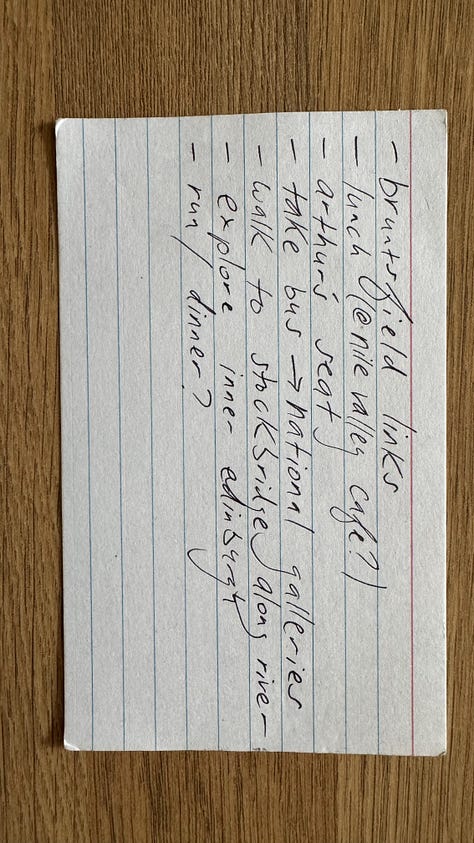 - bruntsfield links
- lunch (@ nile valley cafe?)
- arthur's seat
- take bus → national galleries
- walk to stockbridge along river
- explore inner edinburgh
- run / dinner?